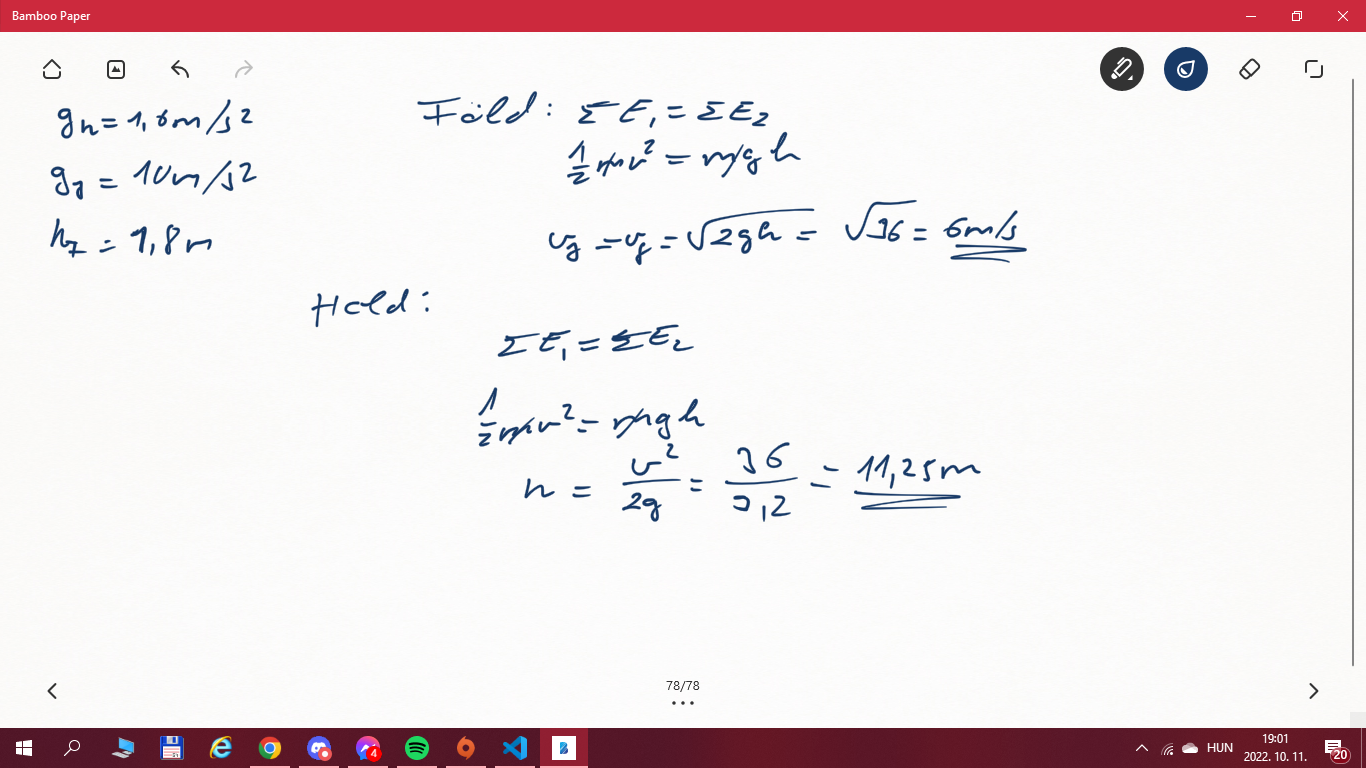 Bamboo Paper
g_h = 1,6m/s²
g_f = 10m/s²
h_f = 1,8m
Föld: ΣE₁ = ΣE₂
½mv² = mgh
v_f = v_f = √2gh = √36 = 6m/s
Hold:
ΣE₁ = ΣE₂
½mv² = mgh
h = v²/2g = 36/3,2 = 11,25m
78/78
4
HUN
19:01
2022. 10. 11.
20